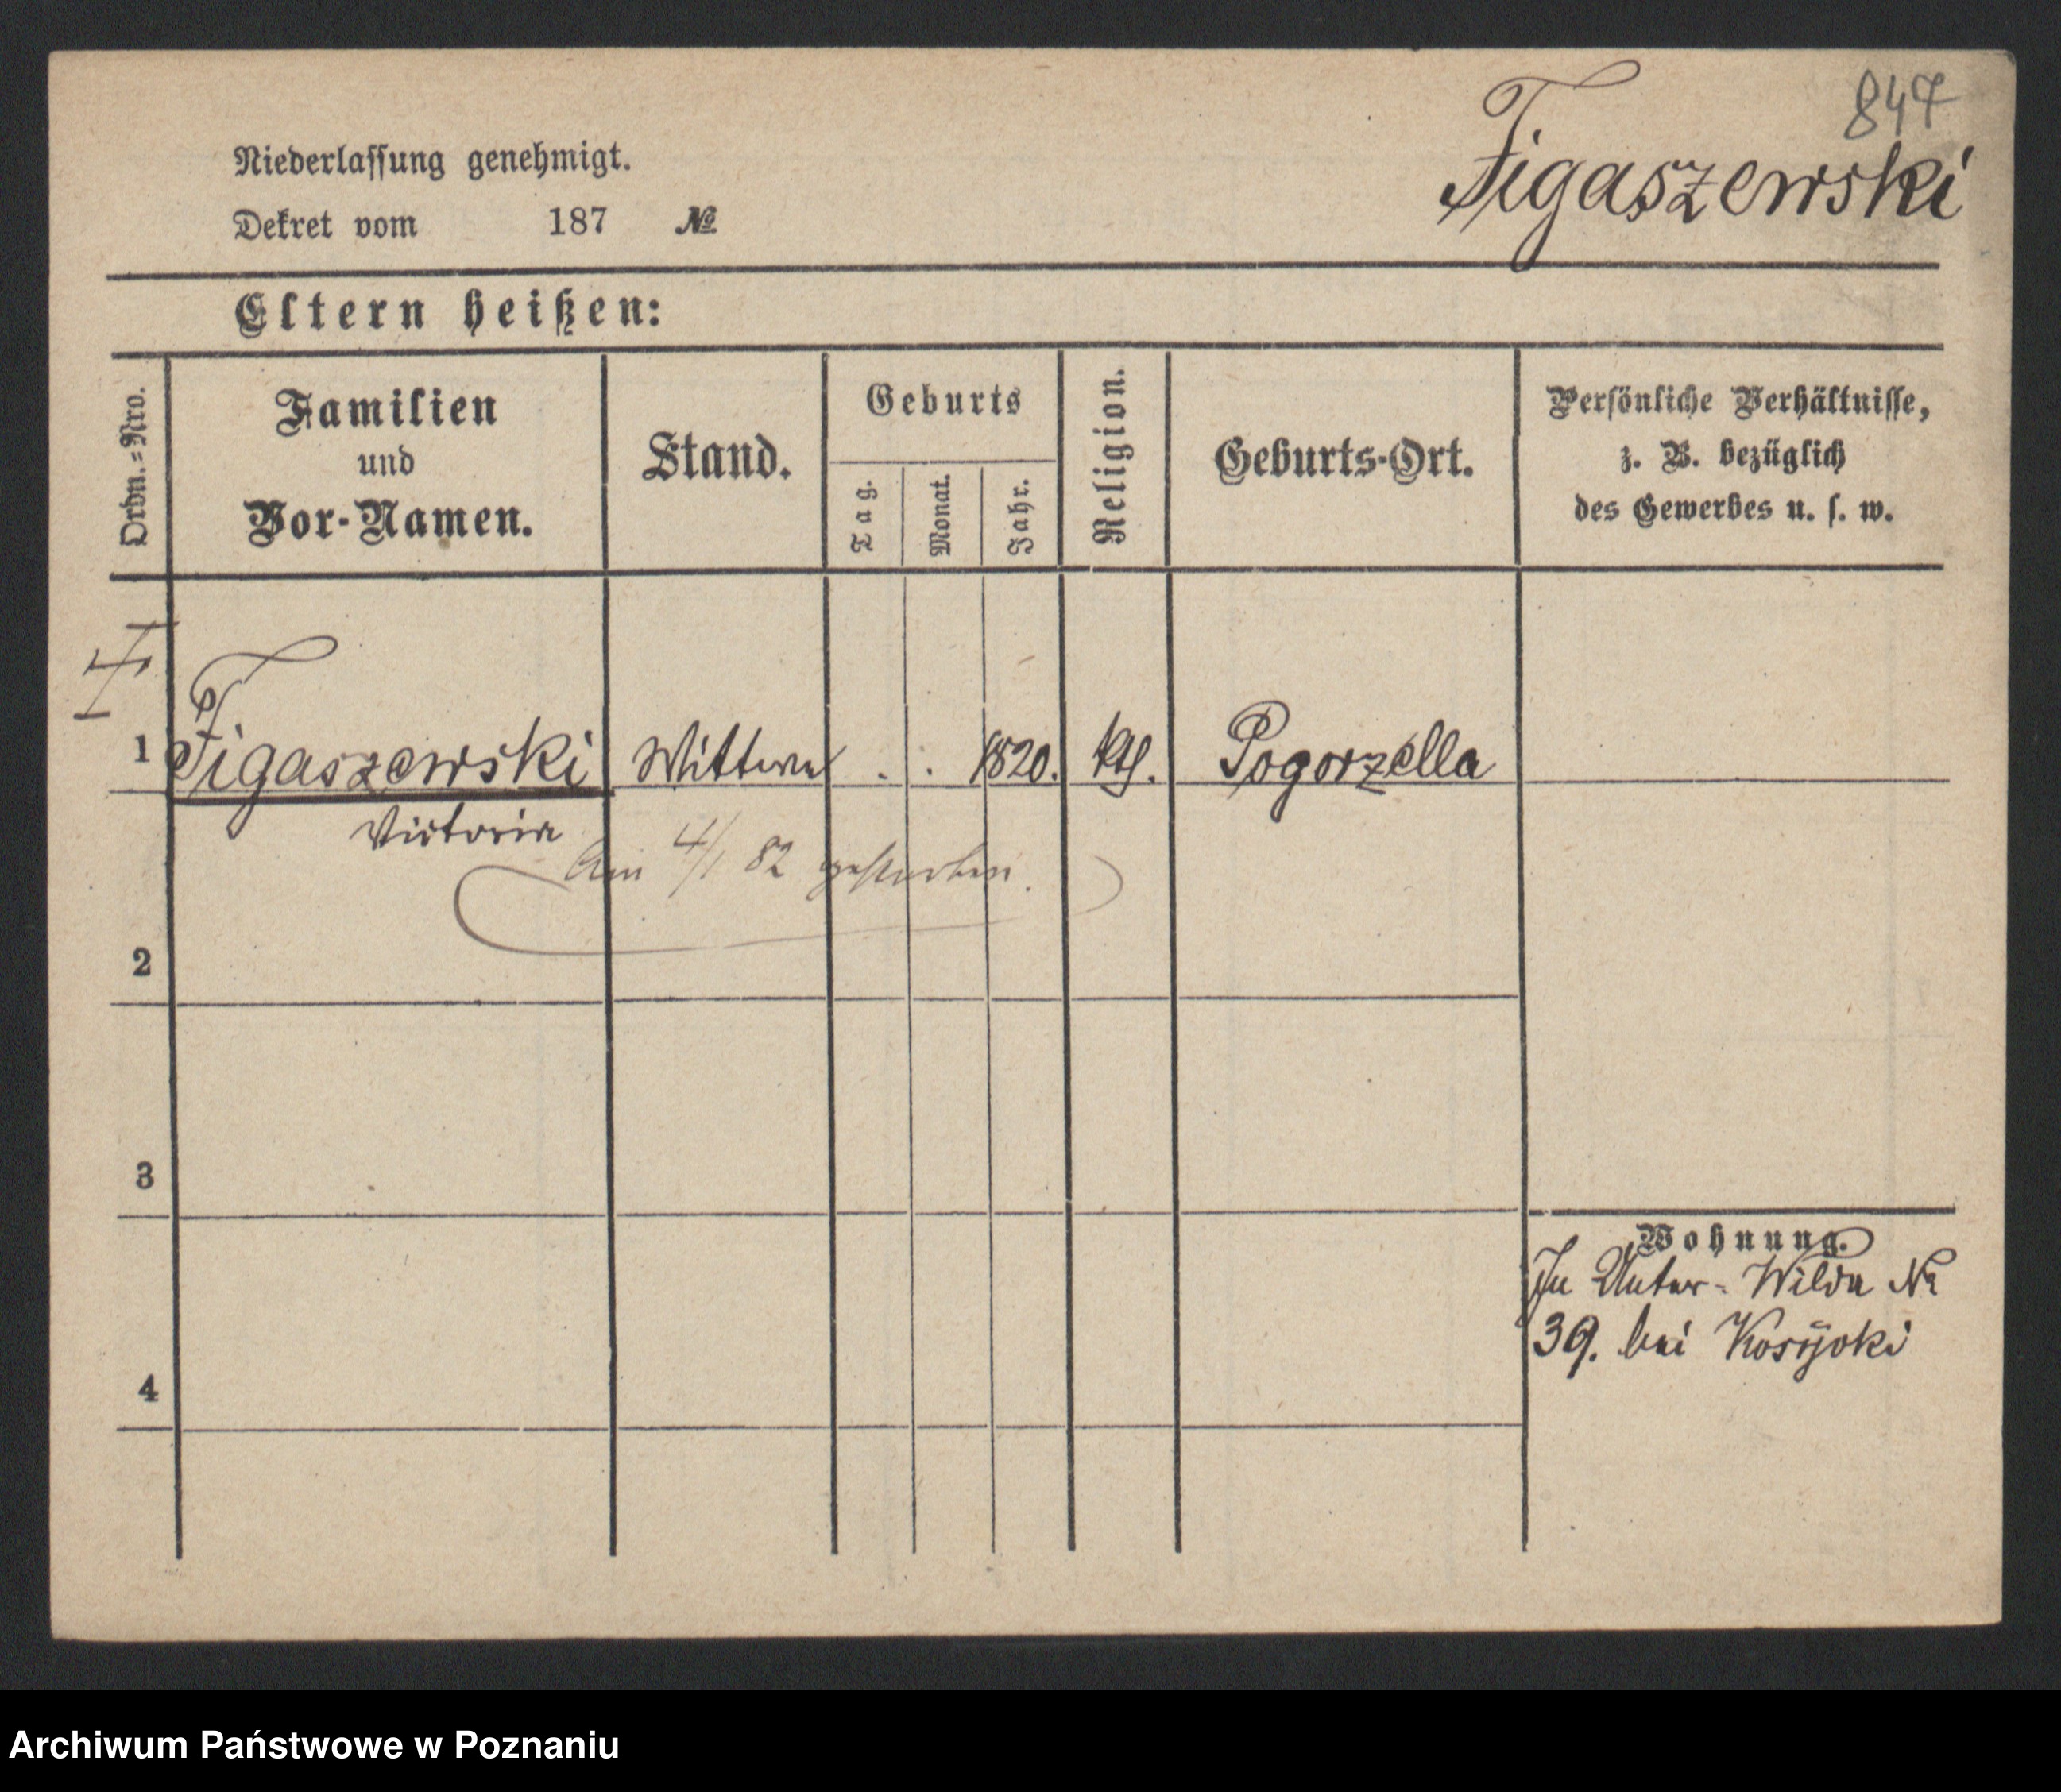 847
Figaszewski
Niederlassung genehmigt.
Dekret vom 187 №
Eltern heißen:
Ordn.=Nro.
Familien
und
Vor-Namen.
Stand.
Geburts
Tag.
Monat.
Jahr.
Religion.
Geburts-Ort.
Persönliche Verhältnisse,
z. B. bezüglich
des Gewerbes u. s. w.
1 Figaszewski Wittwe . . 1820. kth. Pogorzella
Victoria
Am 4/1 82 gestorben.
2
3
4
Wohnung.
In Unter-Wilda №
39. bei
Archiwum Państwowe w Poznaniu